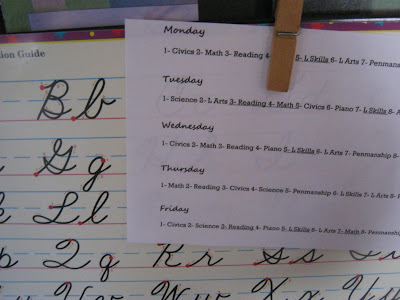 ion Guide
Bb
Gg
Ll
p Qq Rr Ss
Ww Xx
Monday
1- Civics 2- Math 3- Reading 4- 5- L Skills 6- L Arts 7- Penmans
Tuesday
1- Science 2- L Arts 3- Reading 4- Math 5- Civics 6- Piano 7- L Skills 8- A
Wednesday
1- Civics 2- Math 3- Reading 4- Piano 5- L Skills 6- L Arts 7- Penmanship 8-
Thursday
1- Math 2- Reading 3- Civics 4- Science 5- Penmanship 6- L Skills 7- L Arts 8-
Friday
1- Civics 2- Science 3- Reading 4- Piano 5- L Skills 6- L Arts 7- Math 8- Penmanship